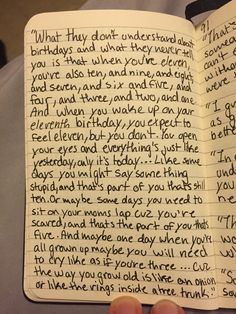 "What they don't understand about
birthdays and what they never tell
you is that when you're eleven,
you're also ten, and nine, and eight,
and seven, and six and five, and
four, and three, and two, and one.
And when you wake up on your
eleventh birthday, you expect to
feel eleven, but you don't. You open
your eyes and everything's just like
yesterday, only it's today... Like some
days you might say something
stupid, and that's part of you that's still
ten. Or maybe some days you need to
sit on your moms lap cuz you're
scared, and that's the part of you thats
five. And maybe one day when you're
all grown up maybe you will need
to cry like as if you're three... cuz
the way you grow old is like an onion
or like the rings inside a tree trunk.
"That's
someo
can't
withou
were
"I
as
"I
"